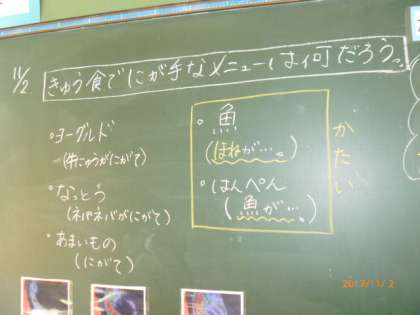 11/2
きゅう食でにが手なメニューは何だろう。
・ヨーグルト
(牛にゅうがにがて)
・なっとう
(ネバネバがにがて)
・あまいもの
(にがて)
・魚
(ほねが…。)
・はんぺん
(魚が…。)
かたい
2017/11/2